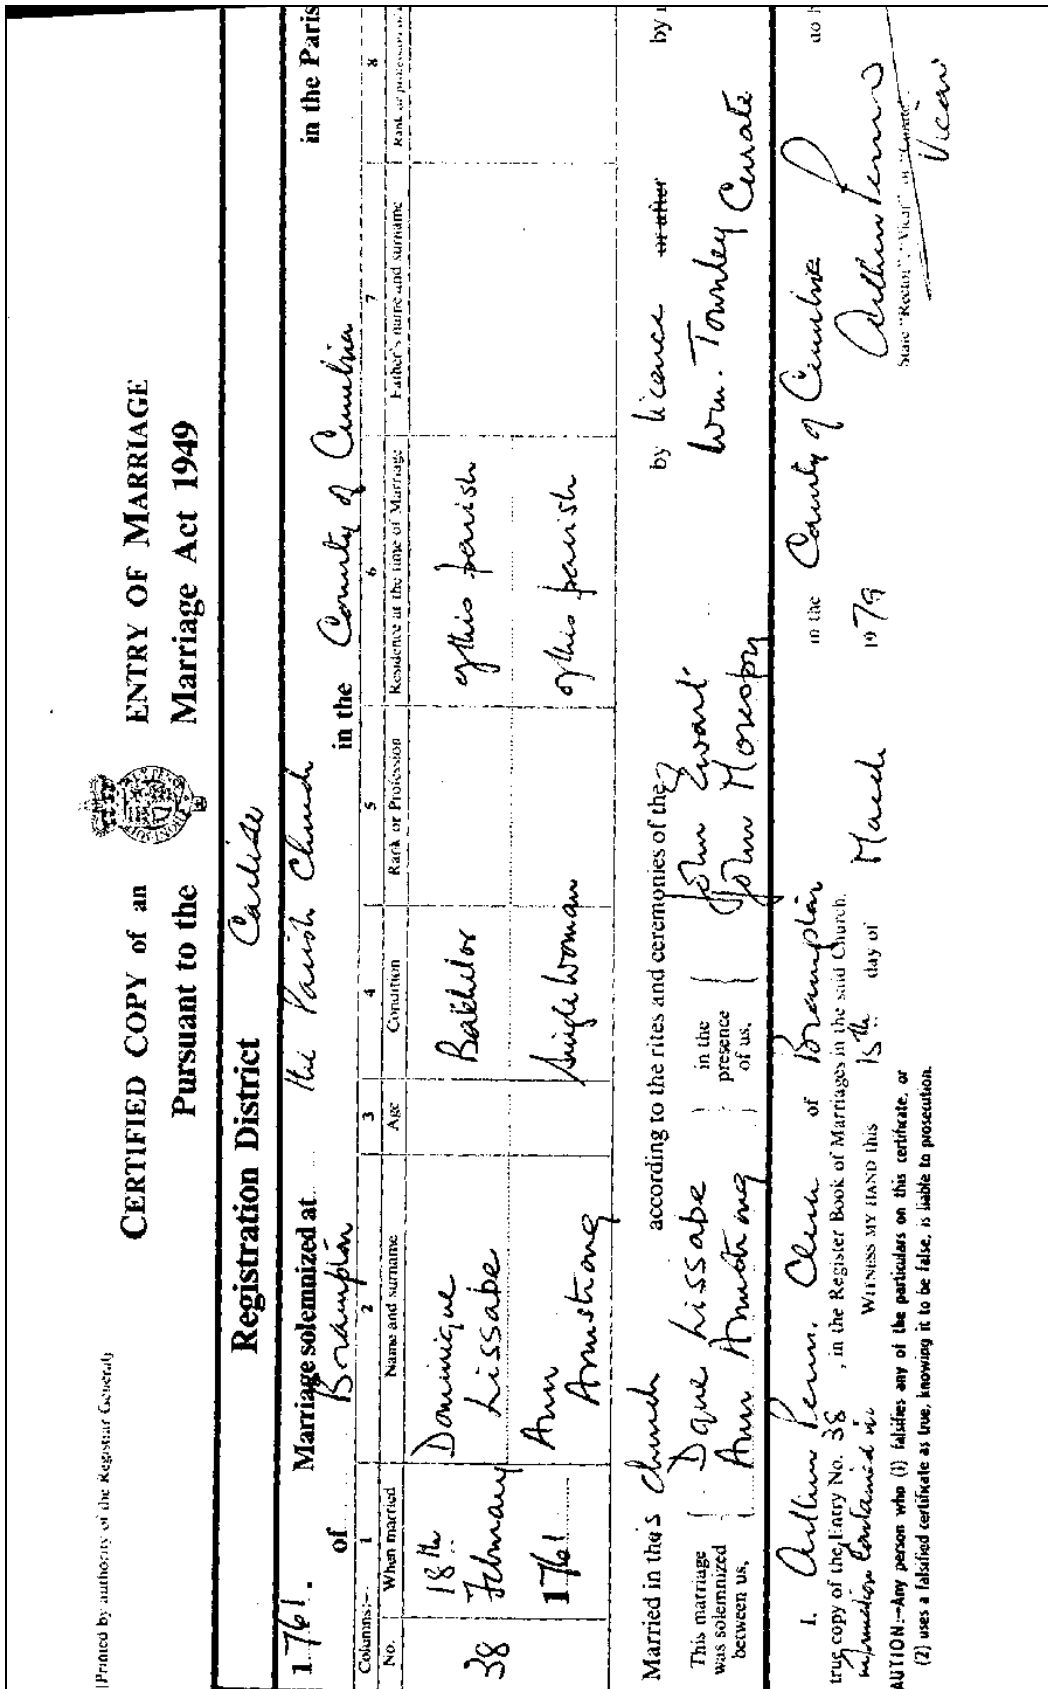 [Printed by authority of the Registrar General]
CERTIFIED COPY of an ENTRY OF MARRIAGE
Pursuant to the Marriage Act 1949
Registration District Carlisle
1761. Marriage solemnized at the Parish Church in the Paris
of Brampton in the County of Cumbria
Columns:– 1 2 3 4 5 6 7 8
No. When married Name and surname Age Condition Rank or Profession Residence at the time of Marriage Father's name and surname Rank or profession of
38 18th February 1761 Dominique Lissabe Bakhelor of this parish
Ann Armstrong Single Woman of this parish
Married in this Church according to the rites and ceremonies of the by licence or after by
This marriage was solemnized between us, { Dque Lissabe } in the presence of us, { John Ewart Wm. Townley Curate
Ann Armstrong John
I, Arthur Penn, of Brampton in the County of Cumbria do h
true copy of the Entry No. 38, in the Register Book of Marriages in the said Church.
information contained in WITNESS MY HAND this 15th day of March 1979
Arthur Penn
State "Rector", "Vicar" or "Curate"
Vicar
AUTION:—Any person who (1) falsifies any of the particulars on this certificate, or
(2) uses a falsified certificate as true, knowing it to be false, is liable to prosecution.